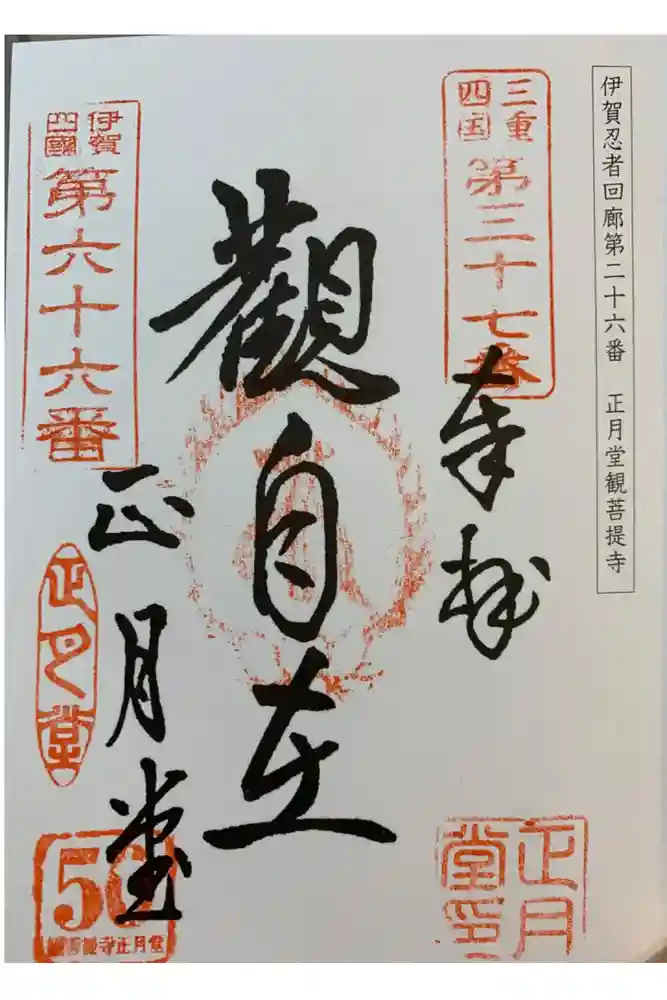 伊賀忍者回廊第二十六番　正月堂観菩提寺
三重
四国
第三十七番
奉拝
觀自在
伊賀
四國
第六十六番
正月堂
正月堂
正月
堂印
50
寺正月堂